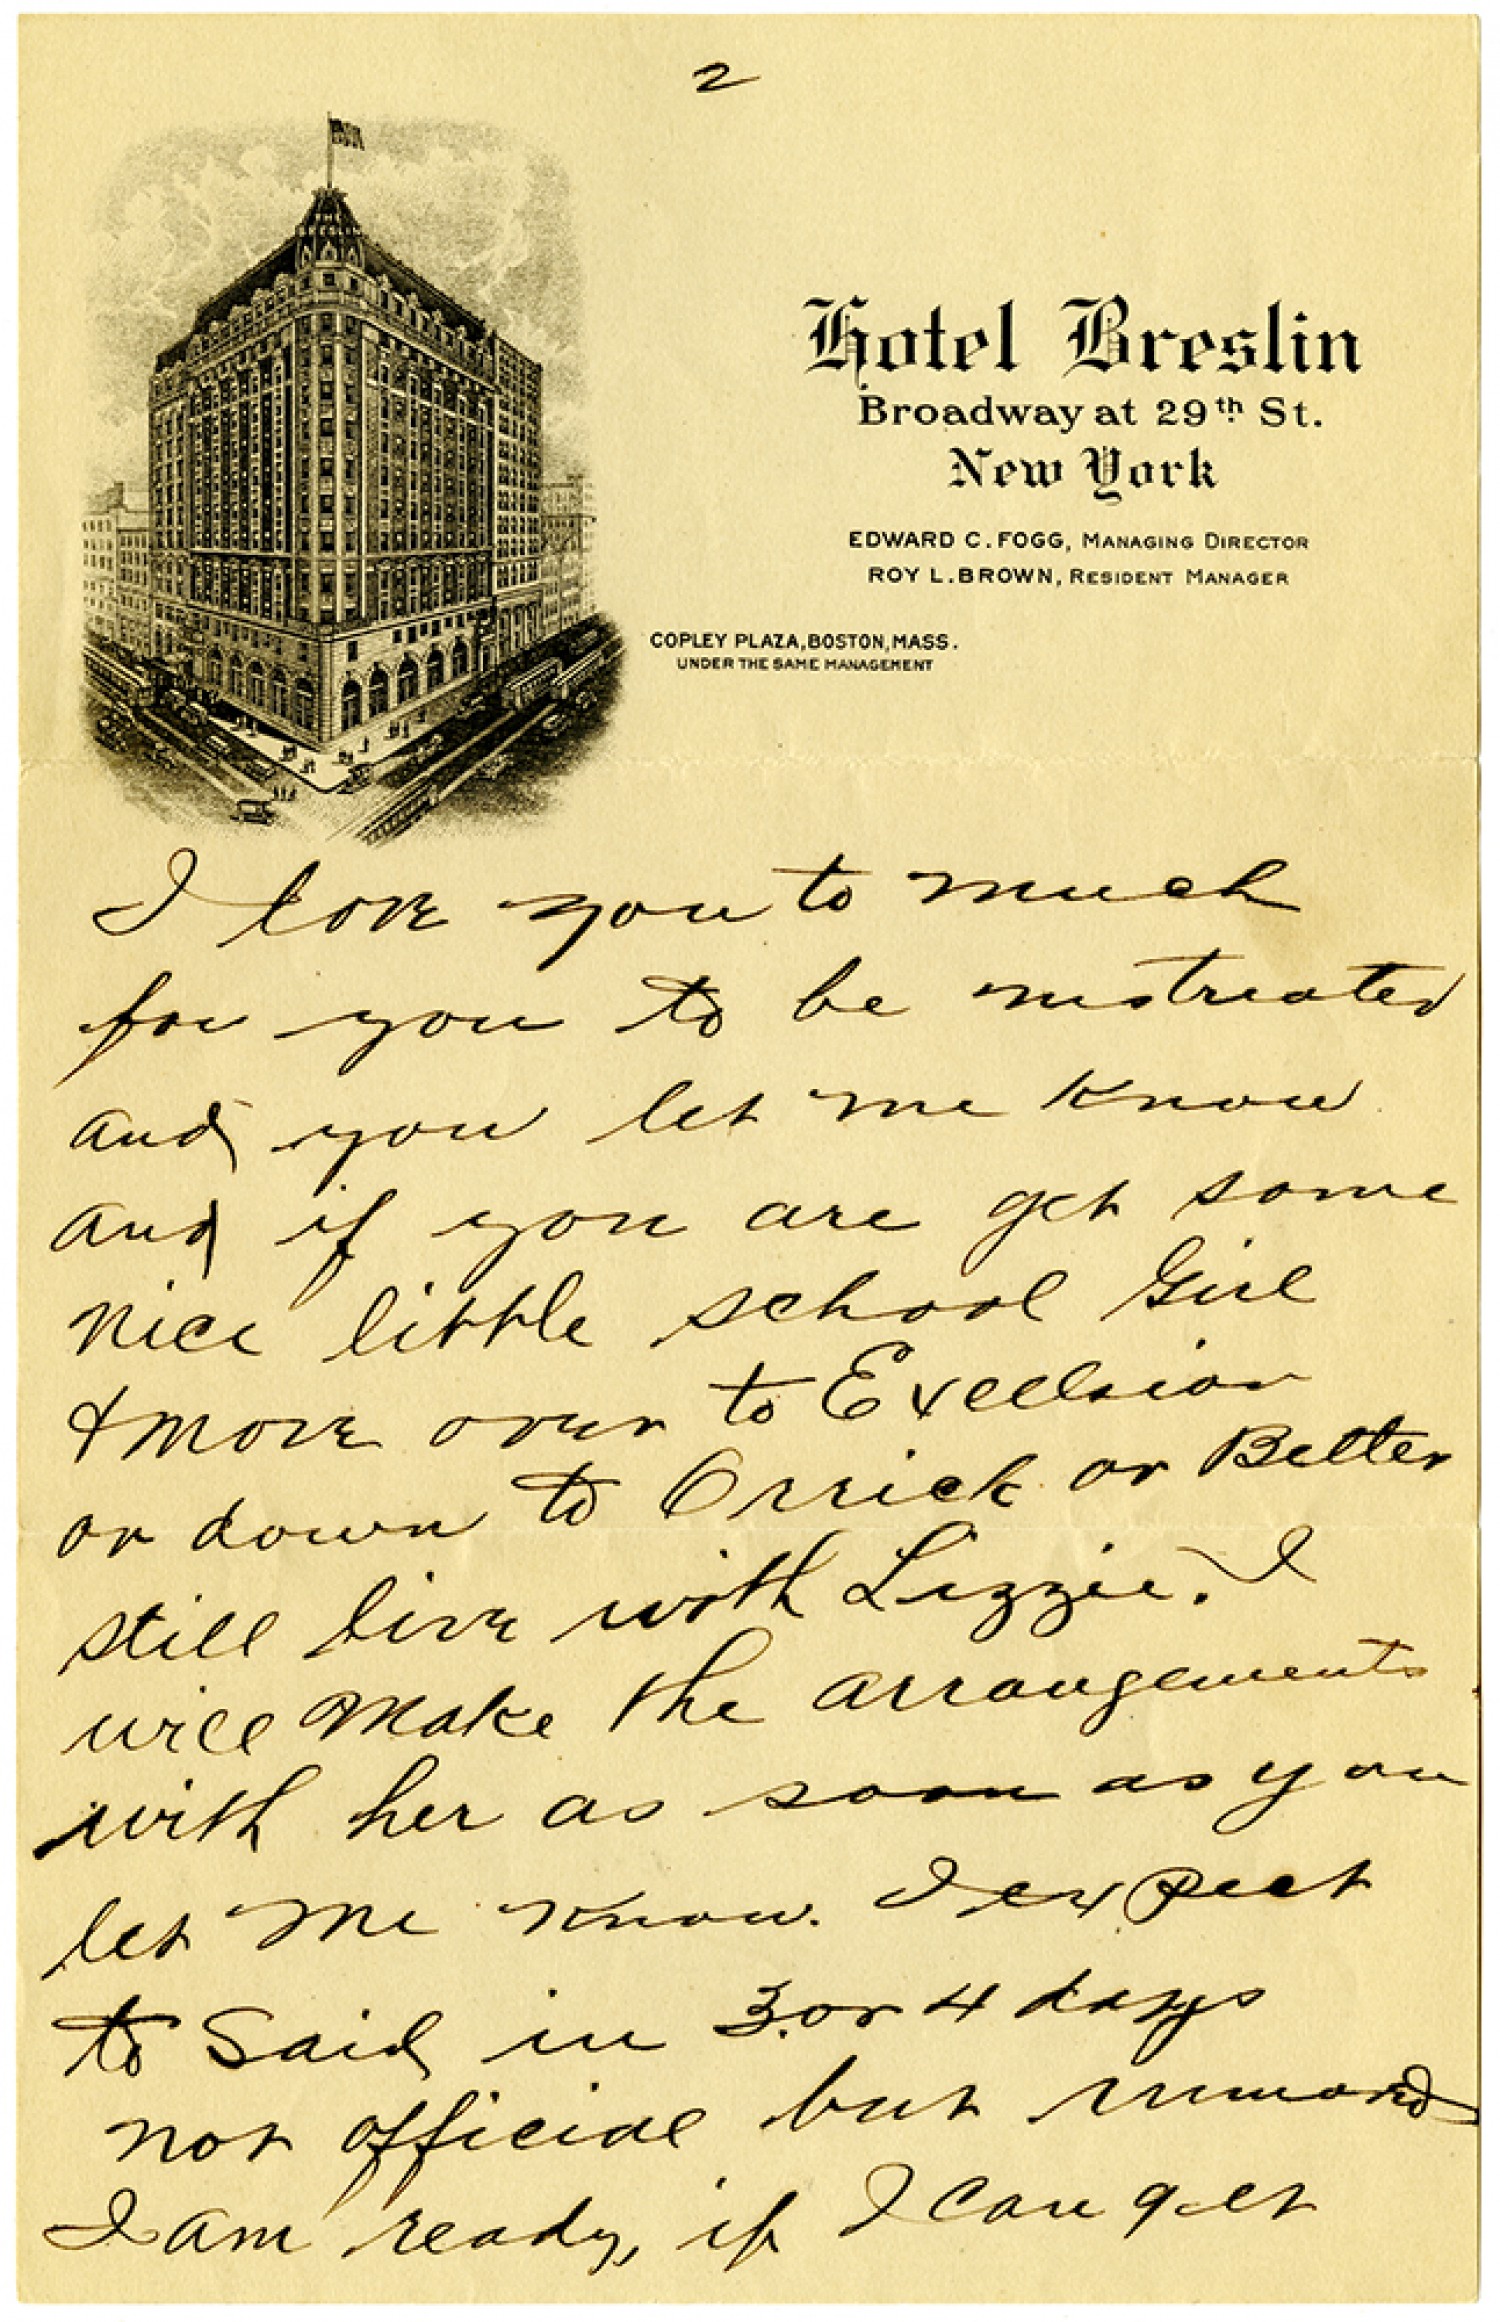 2
Hotel Breslin
Broadway at 29th St.
New York
EDWARD C. FOGG, MANAGING DIRECTOR
ROY L. BROWN, RESIDENT MANAGER
COPLEY PLAZA, BOSTON, MASS.
UNDER THE SAME MANAGEMENT
I love you to much
for you to be mistreated
and you let me know
and if you are get some
nice little school Girl
& move over to Excelsior
or down to Orrick or Better
still live with Lizzie. I
will make the arrangements
with her as soon as you
let me know. I expect
to Sail in 3 or 4 days
not official but rumored
I am ready, if I can get